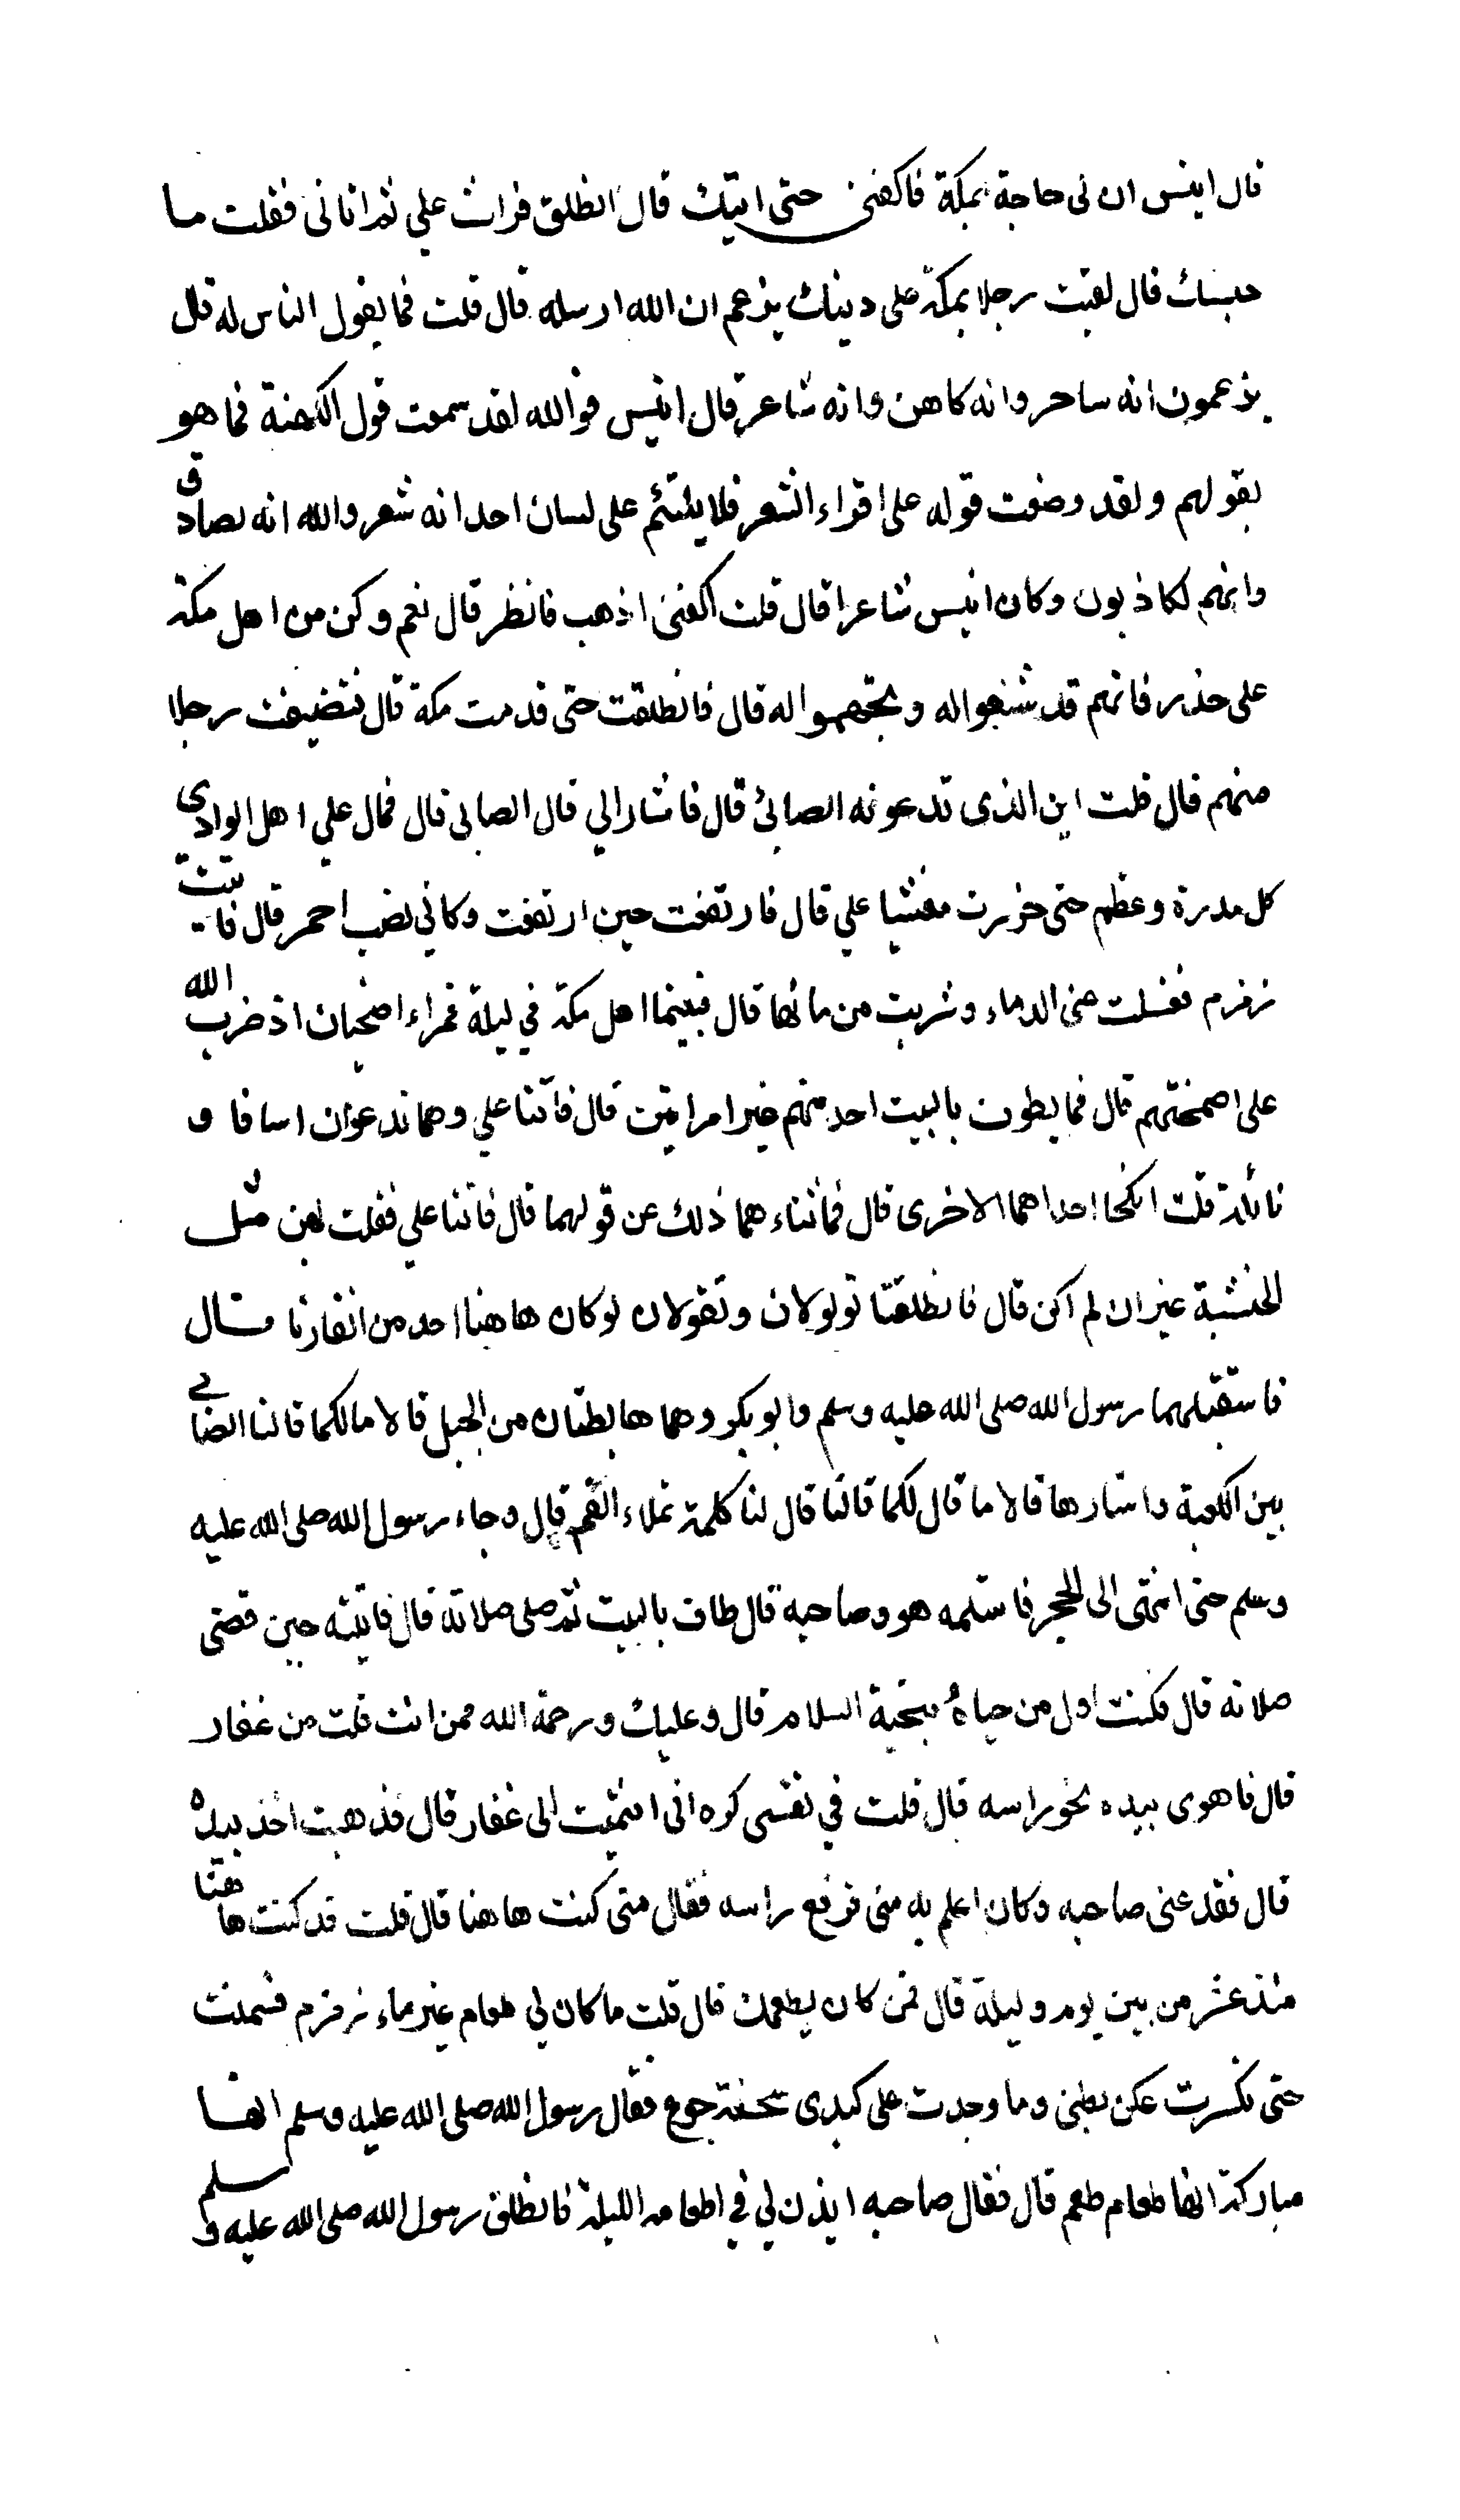 قال انيس ان لى حاجة بمكة فاكفنى حتى اتيك قال انطلق فراث علي ثم اتانى فقلت ما
حبسك قال لقيت رجلا بمكة على دينك يزعم ان الله ارسله قال قلت فما يقول الناس له قال
يزعمون انه ساحر وانه كاهن وانه شاعر قال انيس فوالله لقد سمعت قول الكهنة فما هو
بقولهم ولقد وضعت قوله على اقراء الشعر فلا يلتئم على لسان احد انه شعر والله انه لصادق
وانهم لكاذبون وكان انيس شاعرا قال قلت اكفنى اذهب فانظر قال نعم وكن من اهل مكة
على حذر فانهم قد شنفوا له وتجهموا له قال فانطلقت حتى قدمت مكة قال فتضيفت رجلا
منهم قال قلت اين الذى تدعونه الصابئ قال فاشار الي قال الصابى قال فمال علي اهل الوادى
كل مدرة وعظم حتى خررت مغشيا علي قال فارتفعت حين ارتفعت وكاني نصب احمر قال فاتيت
زمزم فغسلت عنى الدماء وشربت من مائها قال فبينما اهل مكة في ليلة قمراء اضحيان اذ ضرب الله
على اصمختهم قال فما يطوف بالبيت احد منهم غير امراتين قال فاتتا علي وهما تدعوان اسافا و
نائلة قلت انكحا احداهما الاخرى قال فما ثناءهما ذلك عن قولهما قال فاتتا علي فقلت لهن مثل
الخشبة غير ان لم اكن قال فانطلقتا تولولان وتقولان لو كان هاهنا احد من انفارنا قال
فاستقبلهما رسول الله صلى الله عليه وسلم وابو بكر وهما هابطان من الجبل قالا مالكما قالتا الصابي
بين الكعبة واستارها قالا ما قال لكما قالتا قال لنا كلمة تملاء الفم قال وجاء رسول الله صلى الله عليه
وسلم حتى انتهى الى الحجر فاستلمه هو وصاحبه قال طاف بالبيت ثم صلى صلاته قال فاتيته حين قضى
صلاته قال فكنت اول من حياه بتحية السلام قال وعليك ورحمة الله ممن انت قلت من غفار
قال فاهوى بيده نحو راسه قال قلت في نفسى كره انى انتميت الى غفار قال فذهبت اخذ بيده
قال فقدعنى صاحبه وكان اعلم به منى فرفع راسه فقال متى كنت هاهنا قال قلت قد كنت هاهنا
منذ عشر من بين يوم وليلة قال فمن كان يطعمك قال قلت ما كان لي طعام غير ماء زمزم فسمنت
حتى تكسرت عكن بطني وما وجدت على كبدى سخفة جوع فقال رسول الله صلى الله عليه وسلم انها
مباركة انها طعام طعم قال فقال صاحبه ايذن لي في اطعامه الليلة فانطلق رسول الله صلى الله عليه وسلم